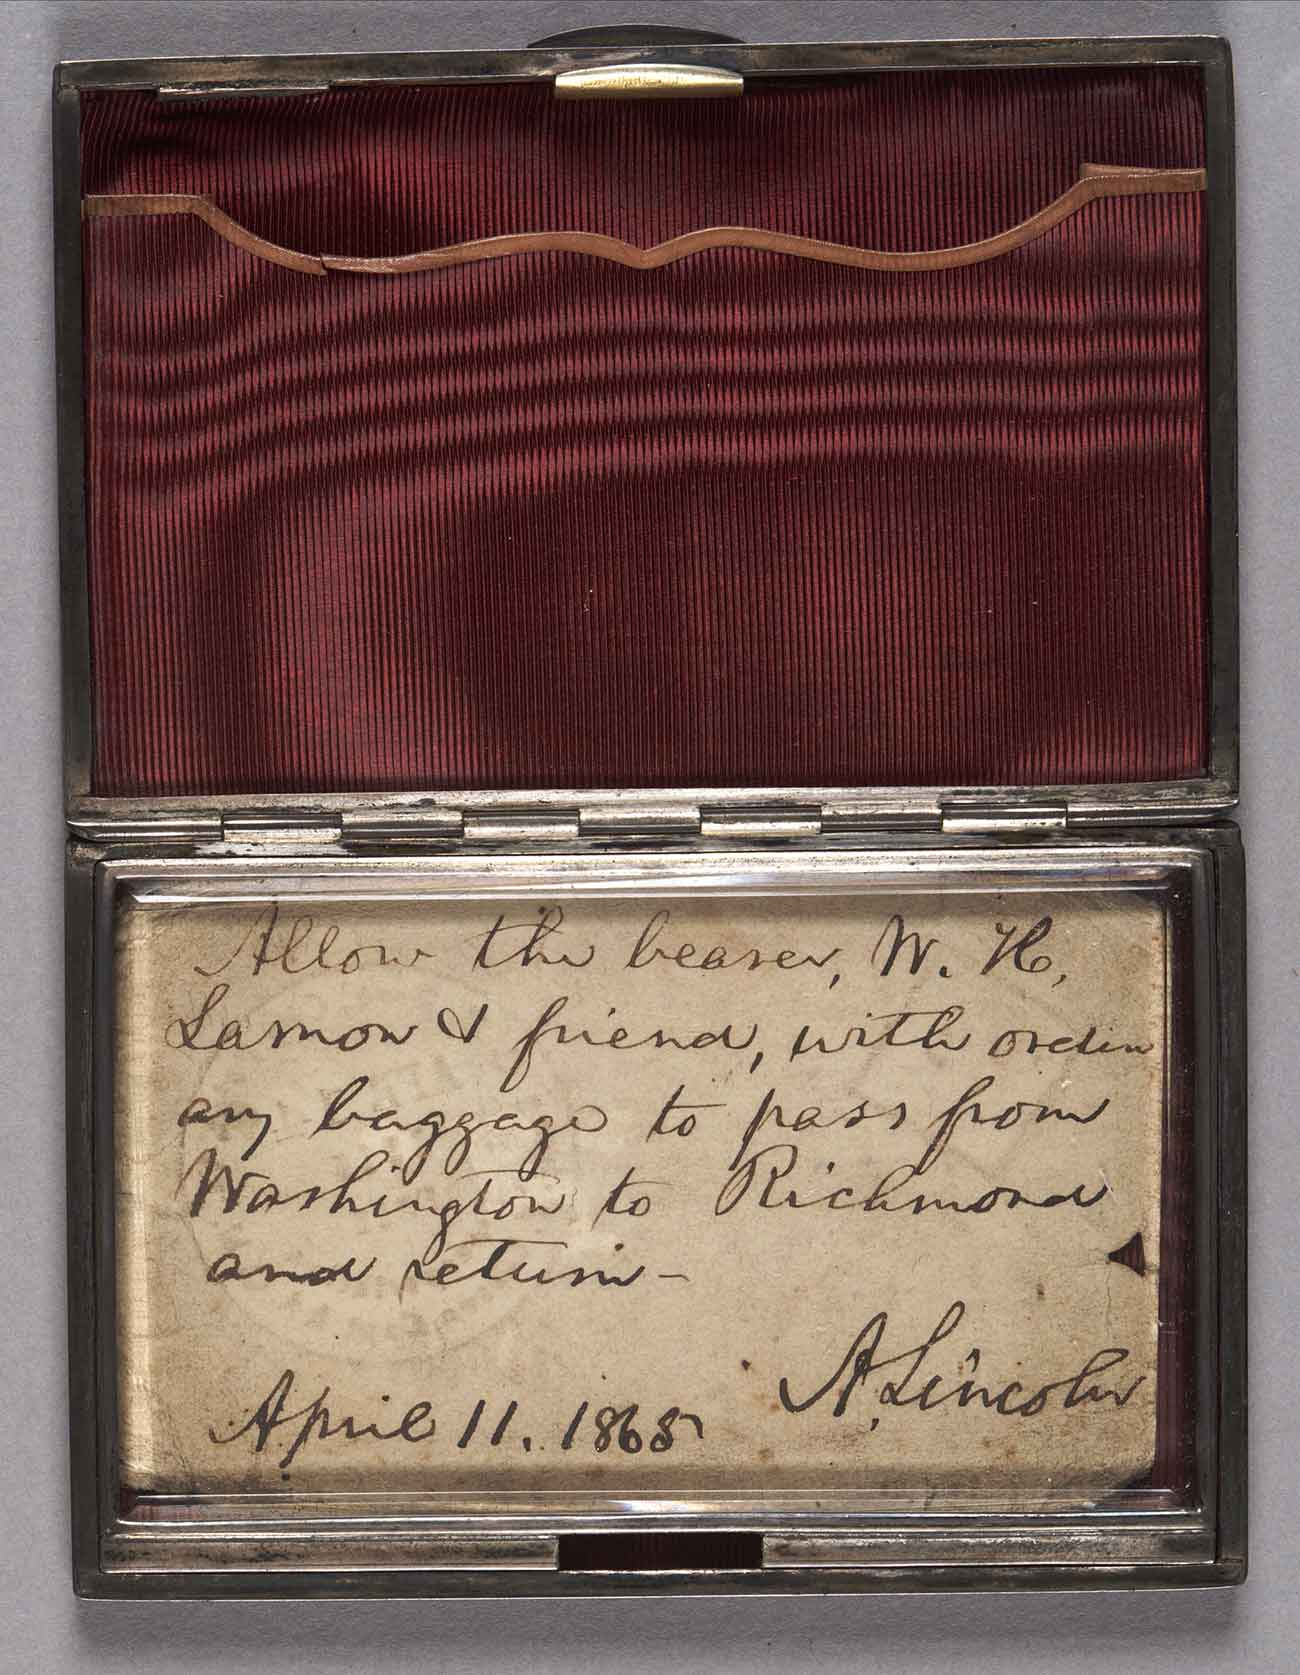 Allow the bearer, W. H.
Lamon & friend, with ordin
ary baggage to pass from
Washington to Richmond
and return-
A. Lincoln
April 11. 1865